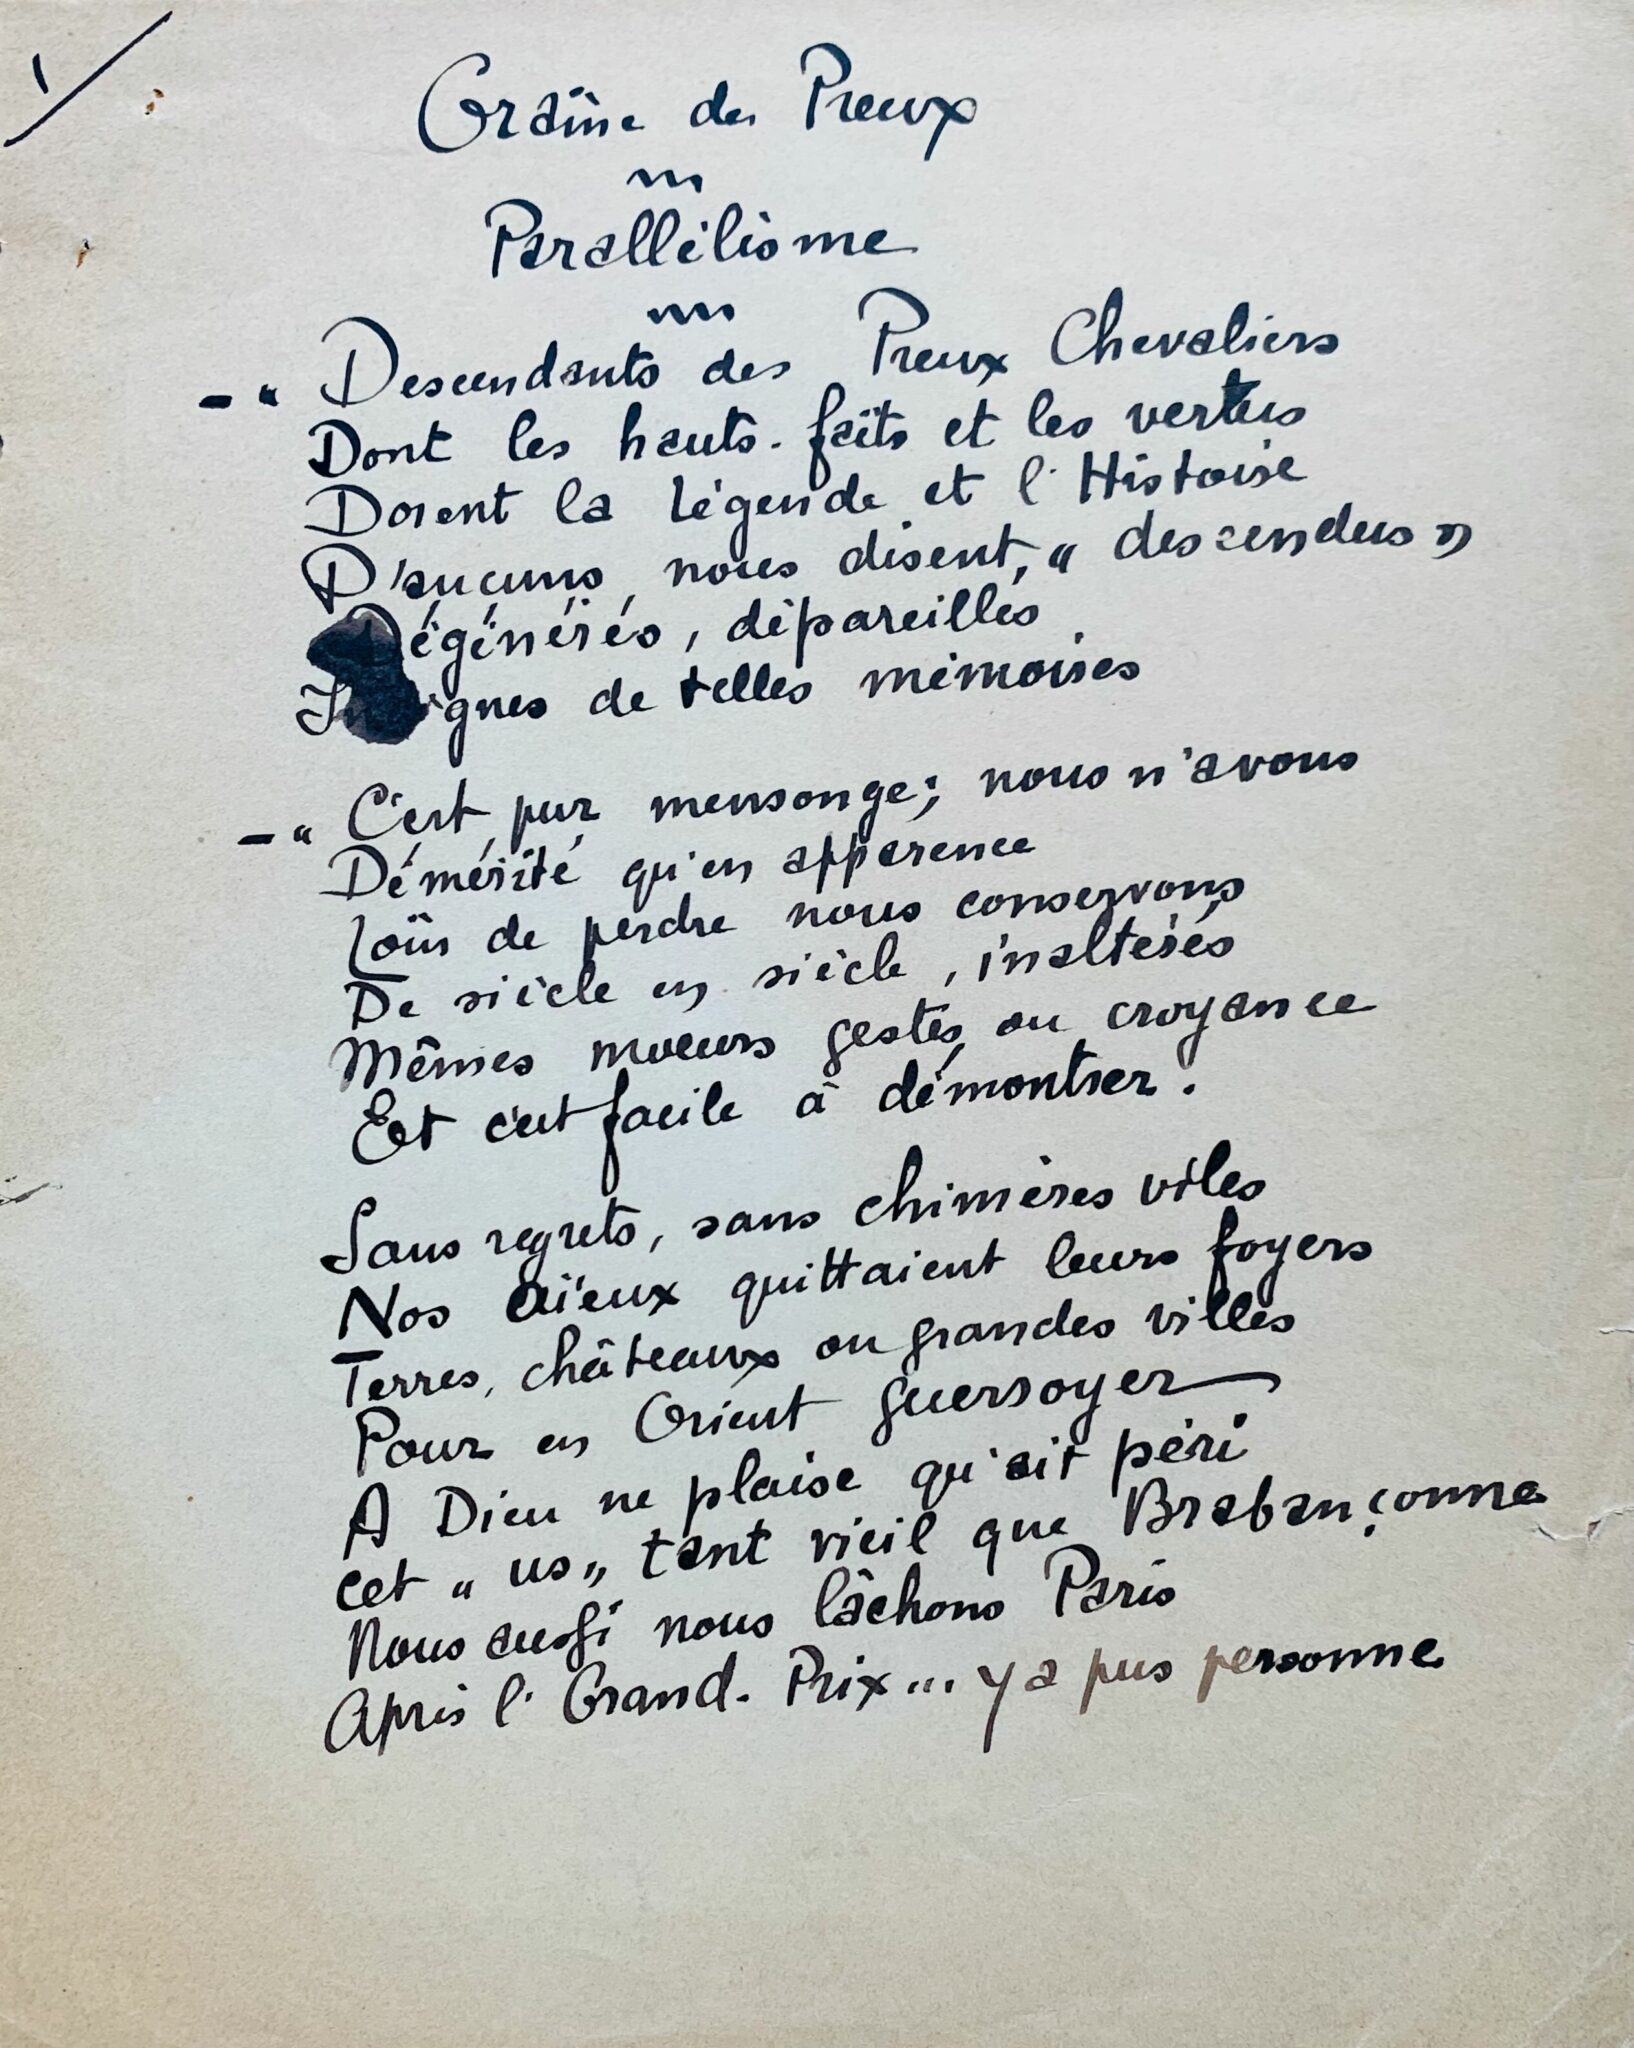 1
Graine de Preux
Parallélisme
- " Descendants des Preux Chevaliers
Dont les hauts-faits et les vertus
Dorent la Légende et l'Histoire
D'aucuns, nous disent, " descendus "
Dégénérés, dépareillés
Indignes de telles mémoires
- " C'est pur mensonge ; nous n'avons
Démérité qu'en apparence
Loin de perdre nous conservons
De siècle en siècle, inaltérés
Mêmes moeurs gestes, ou croyance
Est c'est facile à démontrer.
Sans regrets, sans chimères viles
Nos aïeux quittaient leurs foyers
Terres, châteaux ou grandes villes
Pour en Orient guerroyer
A Dieu ne plaise qu'ait péri
cet " us " tant vieil que Brabançonne
Nous aussi nous lâchons Paris
Après l' Grand-Prix... y a pus personne